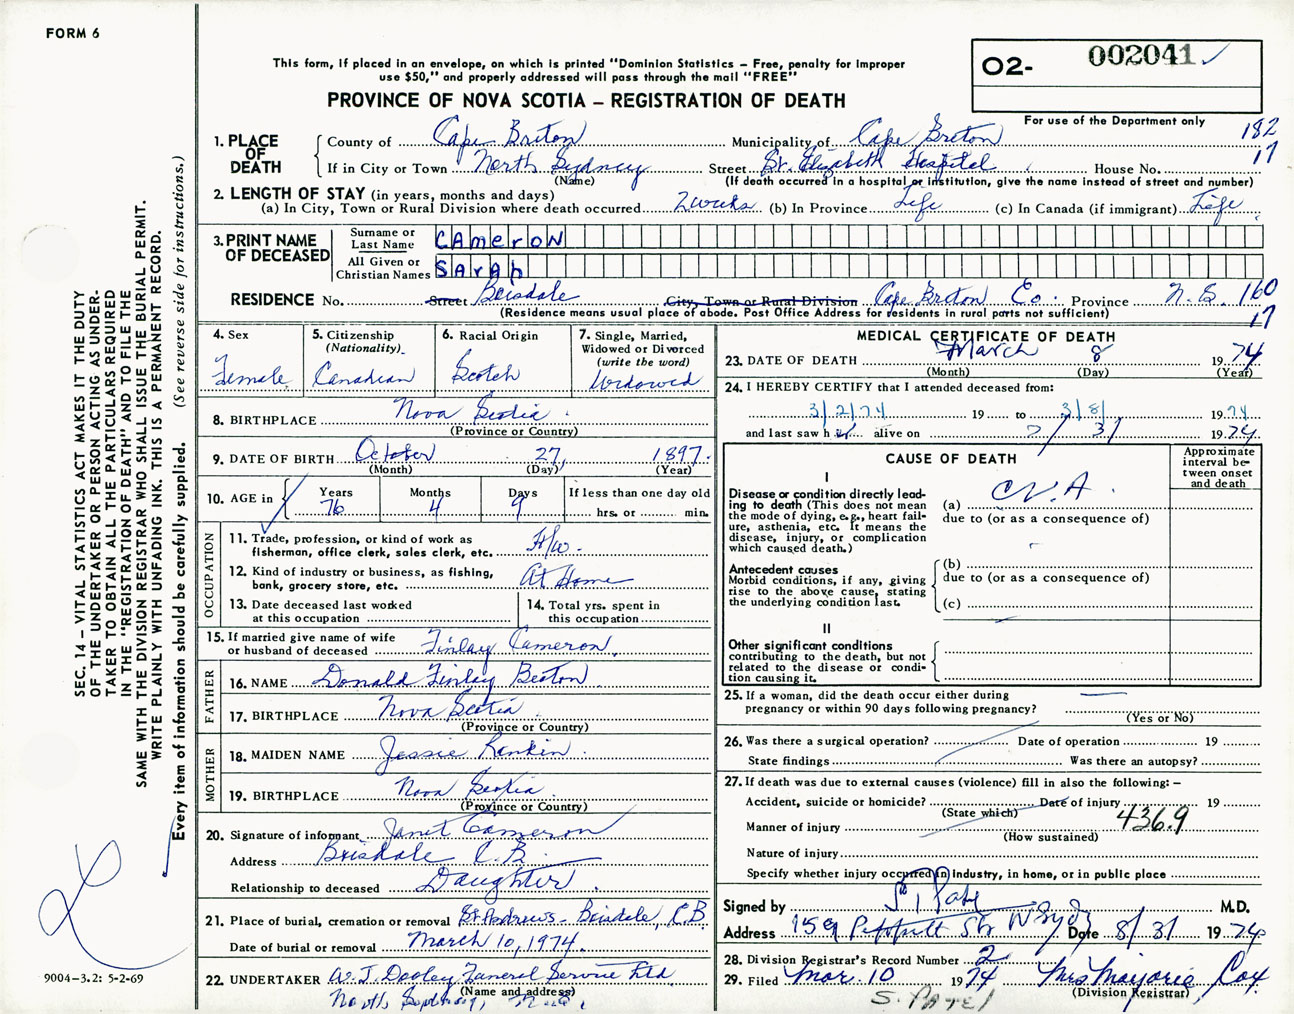 FORM 6
This form, if placed in an envelope, on which is printed "Dominion Statistics – Free, penalty for improper
use $50," and properly addressed will pass through the mail "FREE"
PROVINCE OF NOVA SCOTIA – REGISTRATION OF DEATH
O2- 002041
For use of the Department only
182
17
1. PLACE OF DEATH
County of Cape Breton Municipality of Cape Breton
If in City or Town North Sydney Street St. Elizabeth Hospital House No.
(Name) (If death occurred in a hospital or institution, give the name instead of street and number)
2. LENGTH OF STAY (in years, months and days)
(a) In City, Town or Rural Division where death occurred 2 weeks (b) In Province Life (c) In Canada (if immigrant) Life
3. PRINT NAME OF DECEASED
Surname or Last Name CAMERON
All Given or Christian Names SARAH
RESIDENCE No. Street Boisdale City, Town or Rural Division Cape Breton Co. Province N.S. 160
(Residence means usual place of abode. Post Office Address for residents in rural parts not sufficient)
17
4. Sex Female
5. Citizenship (Nationality) Canadian
6. Racial Origin Scotch
7. Single, Married, Widowed or Divorced (write the word) Widowed
8. BIRTHPLACE Nova Scotia
(Province or Country)
9. DATE OF BIRTH October 27, 1897.
(Month) (Day) (Year)
10. AGE in Years 76 Months 4 Days 9 If less than one day old
hrs. or min.
OCCUPATION
11. Trade, profession, or kind of work as
fisherman, office clerk, sales clerk, etc. H/w.
12. Kind of industry or business, as fishing,
bank, grocery store, etc. At Home
13. Date deceased last worked
at this occupation
14. Total yrs. spent in
this occupation
15. If married give name of wife
or husband of deceased Finlay Cameron
FATHER
16. NAME Donald Finlay Beaton
17. BIRTHPLACE Nova Scotia
(Province or Country)
MOTHER
18. MAIDEN NAME Jessie Rankin
19. BIRTHPLACE Nova Scotia
(Province or Country)
20. Signature of informant Janet Cameron
Address Boisdale C.B.
Relationship to deceased Daughter
21. Place of burial, cremation or removal St. Andrews - Boisdale, C.B.
Date of burial or removal March 10, 1974.
22. UNDERTAKER W. J. Dooley Funeral Service Ltd
(Name and address)
North Sydney, N.S.
MEDICAL CERTIFICATE OF DEATH
23. DATE OF DEATH March 8 1974
(Month) (Day) (Year)
24. I HEREBY CERTIFY that I attended deceased from:
3/2/74 19 to 3/8/ 1974
and last saw h alive on 7/3/ 1974
CAUSE OF DEATH
Approximate interval between onset and death
I
Disease or condition directly leading to death (This does not mean
the mode of dying, e.g., heart failure, asthenia, etc. It means the
disease, injury, or complication
which caused death.)
(a) CVA
due to (or as a consequence of)
Antecedent causes
Morbid conditions, if any, giving
rise to the above cause, stating
the underlying condition last.
(b)
due to (or as a consequence of)
(c)
II
Other significant conditions
contributing to the death, but not
related to the disease or condition causing it.
25. If a woman, did the death occur either during
pregnancy or within 90 days following pregnancy?
(Yes or No)
26. Was there a surgical operation? Date of operation 19
State findings Was there an autopsy?
27. If death was due to external causes (violence) fill in also the following: –
Accident, suicide or homicide? Date of injury 19
(State which)
Manner of injury 436.9
(How sustained)
Nature of injury
Specify whether injury occurred in Industry, in home, or in public place
Signed by S. Patel M.D.
Address 159 Peppitt Str N Sydy Date 8/3/ 1974
28. Division Registrar's Record Number 2
29. Filed Mar. 10 1974 Mrs Marjorie Cox
(Division Registrar)
S. PATEL
SEC. 14 – VITAL STATISTICS ACT MAKES IT THE DUTY
OF THE UNDERTAKER OR PERSON ACTING AS UNDER-
TAKER TO OBTAIN ALL THE PARTICULARS REQUIRED
IN THE "REGISTRATION OF DEATH" AND TO FILE THE
SAME WITH THE DIVISION REGISTRAR WHO SHALL ISSUE THE BURIAL PERMIT.
WRITE PLAINLY WITH UNFADING INK. THIS IS A PERMANENT RECORD.
Every item of information should be carefully supplied. (See reverse side for instructions.)
9004-3.2: 5-2-69